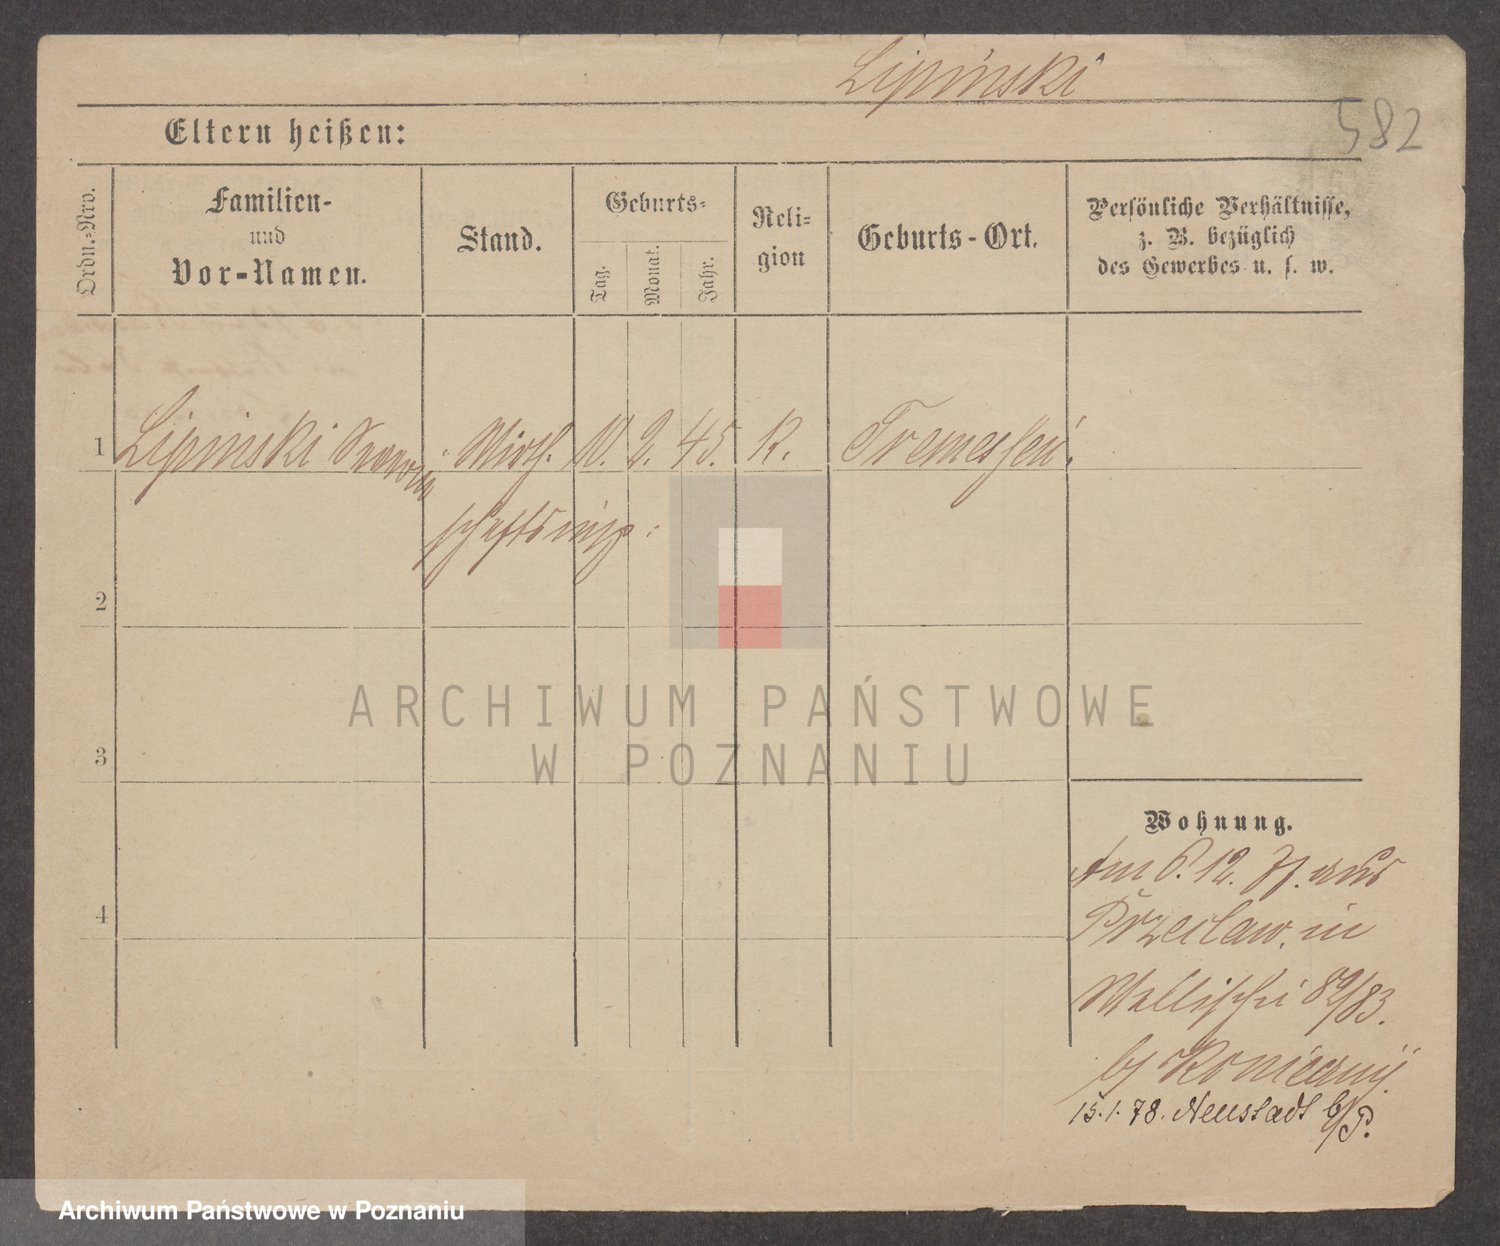 Lipinski
582
Eltern heißen:
Ordn.-Nro.
Familien-
und
Vor-Namen.
Stand.
Geburts-
Tag.
Monat.
Jahr.
Reli-
gion
Geburts-Ort.
Persönliche Verhältnisse,
z. B. bezüglich
des Gewerbes u. s. w.
1 Lipinski Wirth- 10. 2. 45. K. Tremessen.
schaftsinsp:
2
3
4
Wohnung.
Am 6. 12. 77. aus
Przeclaw. in
Wallischei 82/83.
b/
15.1.78. Neustadt b/P.
ARCHIWUM PAŃSTWOWE
W POZNANIU
Archiwum Państwowe w Poznaniu